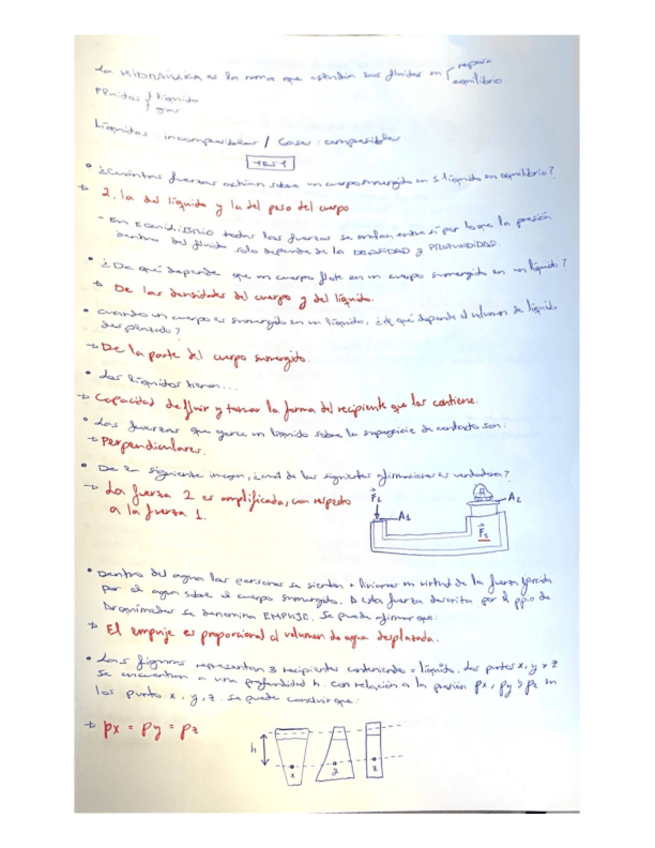 La HIDRÁULICA es la rama que estudia los fluidos en reposo
equilibrio
Fluidos líquido
gas
Líquidos: incompresibles / Gases: compresibles
TEST
• ¿Cuántas fuerzas actúan sobre un cuerpo sumergido en 1 líquido en equilibrio?
→ 2. la del líquido y la del peso del cuerpo
- En EQUILIBRIO todas las fuerzas se anulan entre sí por lo que la presión
dentro del fluido solo depende de la DENSIDAD y PROFUNDIDAD.
• ¿De qué depende que un cuerpo flote en un cuerpo sumergido en un líquido?
→ De las densidades del cuerpo y del líquido.
• cuando un cuerpo es sumergido en un líquido, ¿de qué depende el volumen de líquido
desplazado?
→ De la parte del cuerpo sumergido.
• Los líquidos tienen...
→ Capacidad de fluir y tomar la forma del recipiente que los contiene.
• Las fuerzas que ejerce un líquido sobre la superficie de contacto son:
→ Perpendiculares.
• De la siguiente imagen, ¿cuál de las siguientes afirmaciones es verdadera?
→ La fuerza 2 es amplificada, con respecto
a la fuerza 1.
F1
A1
A2
F2
• Dentro del agua las personas se sienten + livianas en virtud de la fuerza ejercida
por el agua sobre el cuerpo sumergido. A esta fuerza descrita por el ppio de
Arquímedes se denomina EMPUJE. Se puede afirmar que:
→ El empuje es proporcional al volumen de agua desplazada.
• Las figuras representan 3 recipientes conteniendo = líquido. Los puntos x, y, z
se encuentran a una profundidad h. con relación a la presión px, py y pz en
los puntos x, y, z. se puede concluir que:
→ px = py = pz
h
x
y
z